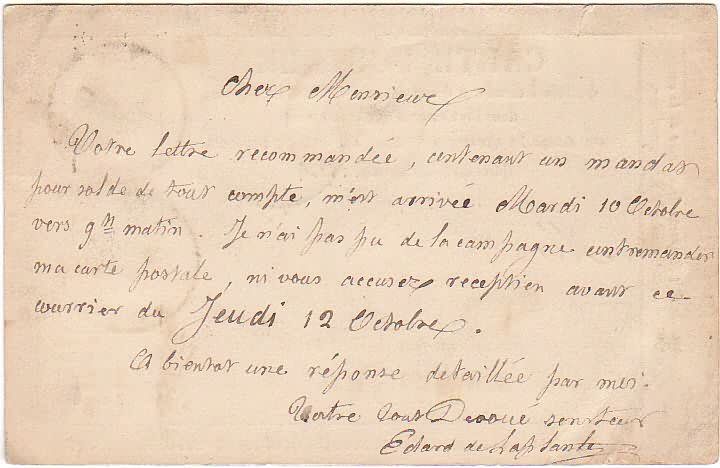 Cher Monsieur
Votre lettre recommandée, contenant un mandat
pour solde de tout compte, m'est arrivée Mardi 10 Octobre
vers 9h matin. Je n'ai pas pu de la campagne contremander
ma carte postale, ni vous accuser reception avant ce
courrier du Jeudi 12 Octobre.
A bientot une réponse detaillée par moi.
Votre tout Devoué serviteur
Edard de Laplante